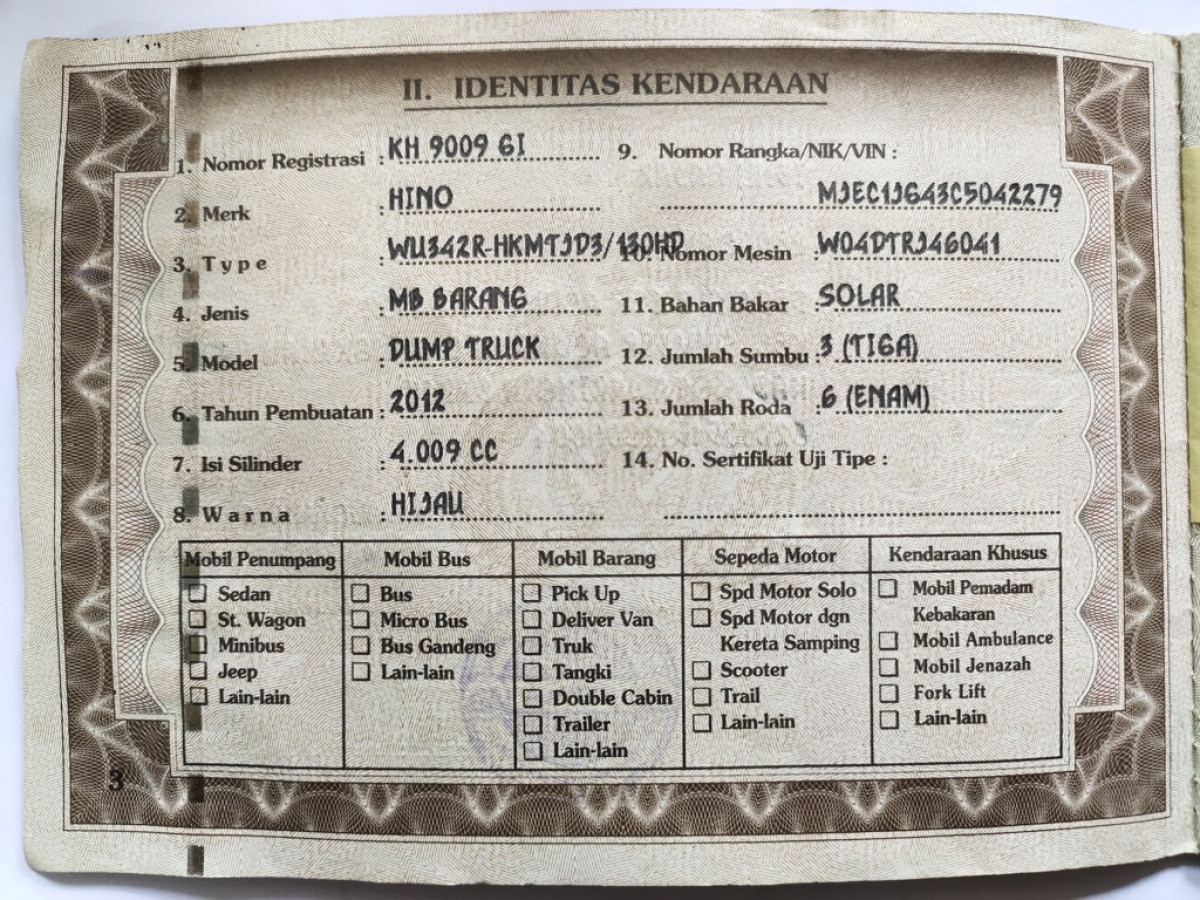 II. IDENTITAS KENDARAAN
1. Nomor Registrasi : KH 9009 GI
2. Merk : HINO
3. Type : WU342R-HKMTJD3/130HD
4. Jenis : MB BARANG
5. Model : DUMP TRUCK
6. Tahun Pembuatan : 2012
7. Isi Silinder : 4.009 CC
8. Warna : HIJAU
9. Nomor Rangka/NIK/VIN :
MJEC1JG43C5042279
10. Nomor Mesin : W04DTRJ46041
11. Bahan Bakar : SOLAR
12. Jumlah Sumbu : 3 (TIGA)
13. Jumlah Roda : 6 (ENAM)
14. No. Sertifikat Uji Tipe :
Mobil Penumpang
Sedan
St. Wagon
Minibus
Jeep
Lain-lain
Mobil Bus
Bus
Micro Bus
Bus Gandeng
Lain-lain
Mobil Barang
Pick Up
Deliver Van
Truk
Tangki
Double Cabin
Trailer
Lain-lain
Sepeda Motor
Spd Motor Solo
Spd Motor dgn
Kereta Samping
Scooter
Trail
Lain-lain
Kendaraan Khusus
Mobil Pemadam
Kebakaran
Mobil Ambulance
Mobil Jenazah
Fork Lift
Lain-lain
3